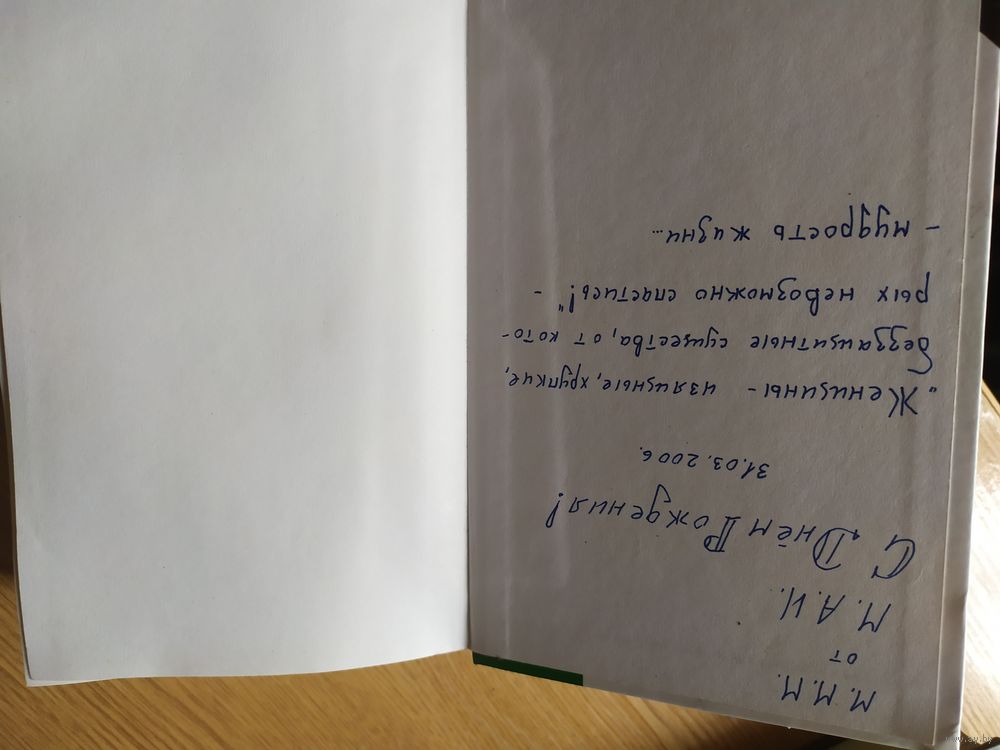 М. М. М.
от
М. А. И.
С Днём Рождения!
31.03.2006.
"Женщины - изящные, хрупкие,
беззащитные существа, от кото-
рых невозможно спастись!" -
- мудрость жизни...